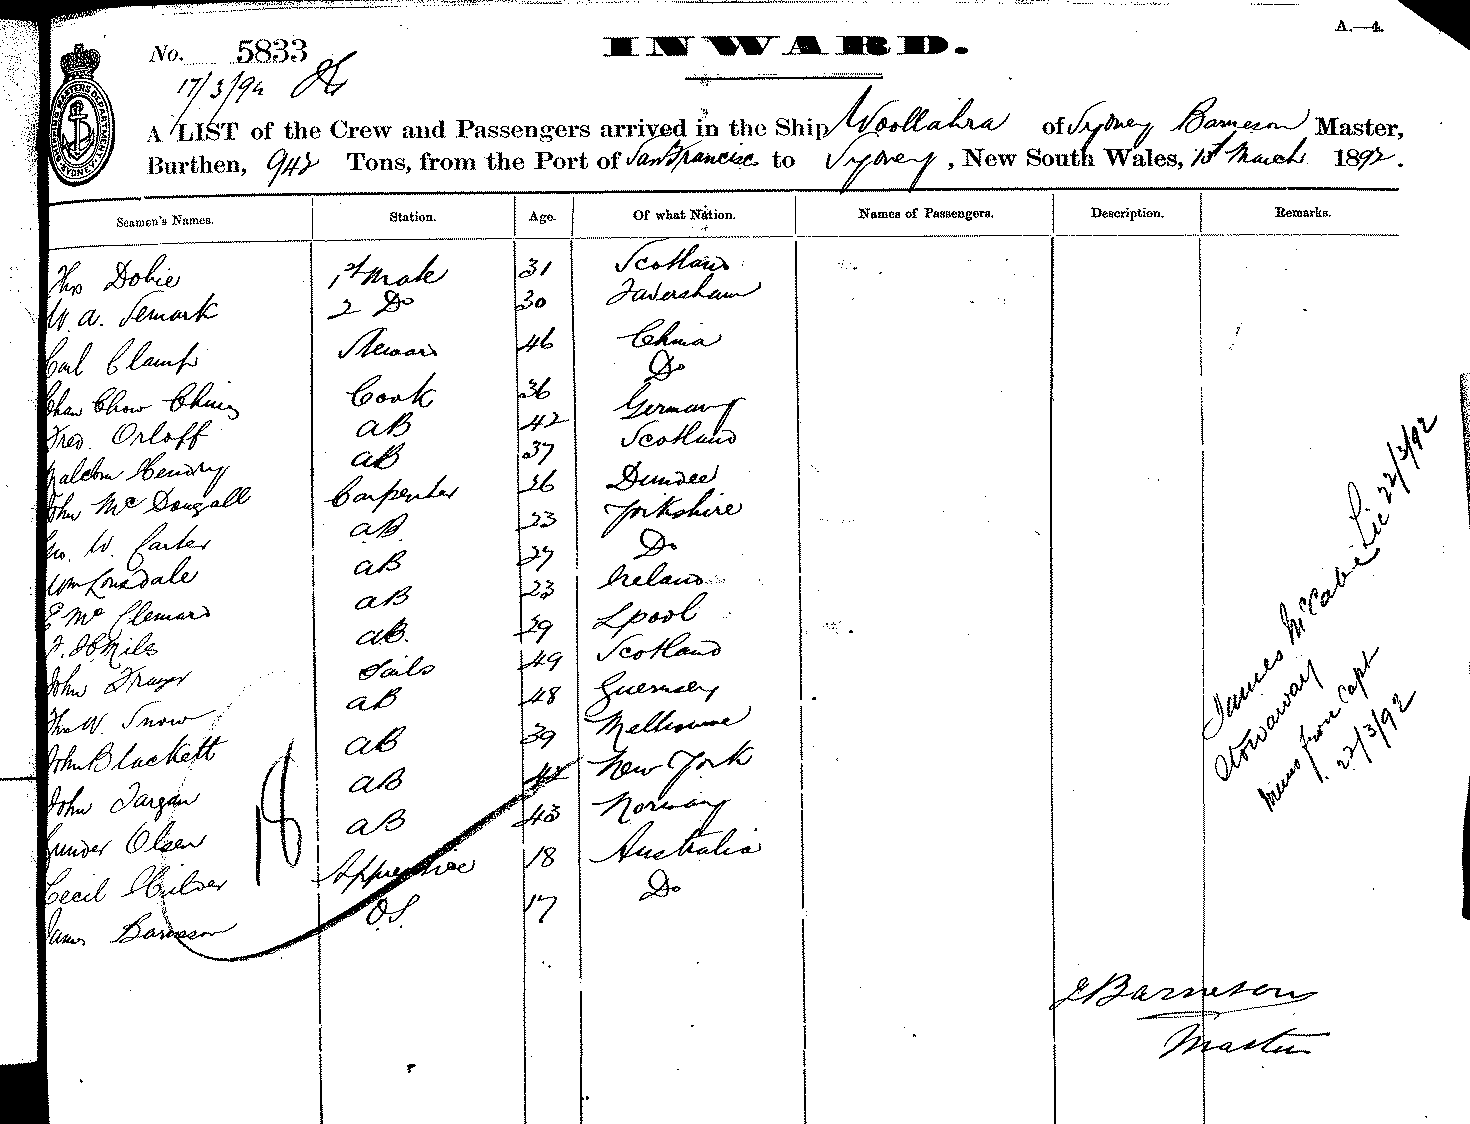 A.—4.
No. 5833
INWARD.
17/3/92
A LIST of the Crew and Passengers arrived in the Ship Woollahra of Sydney Barneson Master,
Burthen, 942 Tons, from the Port of San Francisco to Sydney, New South Wales, 15th March 1892.
Seamen's Names. Station. Age. Of what Nation. Names of Passengers. Description. Remarks.
Thos Dobie 1st Mate 31 Scotland
W. A. Semark 2 Do 30 Faversham
Carl Clamp Steward 46 China
Chan Chow Ching Cook 36 Do
Fred Orloff AB 42 Germany
Malcolm Hendry AB 37 Scotland
John McDougall Carpenter 26 Dundee
Geo. W. Carter AB 23 Yorkshire
Wm Lonsdale AB 27 Do
E Mc AB 23 Ireland
F. AB. 29 Lpool
John Frazer Sails 49 Scotland
Thos W. Snow AB 48 Guernsey
John Blackett AB 39 Melbourne
John Targan AB 42 New York
Gunder Olsen AB 43 Norway
Cecil Hilder Apprentice 18 Australia
James Barneson O.S. 17 Do
18
James McCabe Lic 22/3/92
Stowaway
Memo from Capt
22/3/92
J Barneson
Master